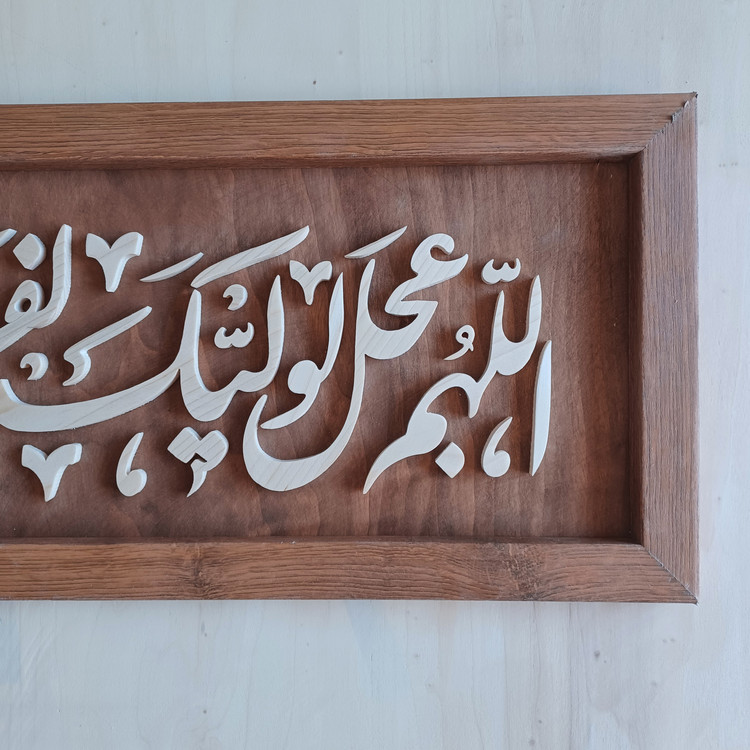 اللّهم عجل لولیّک الفر